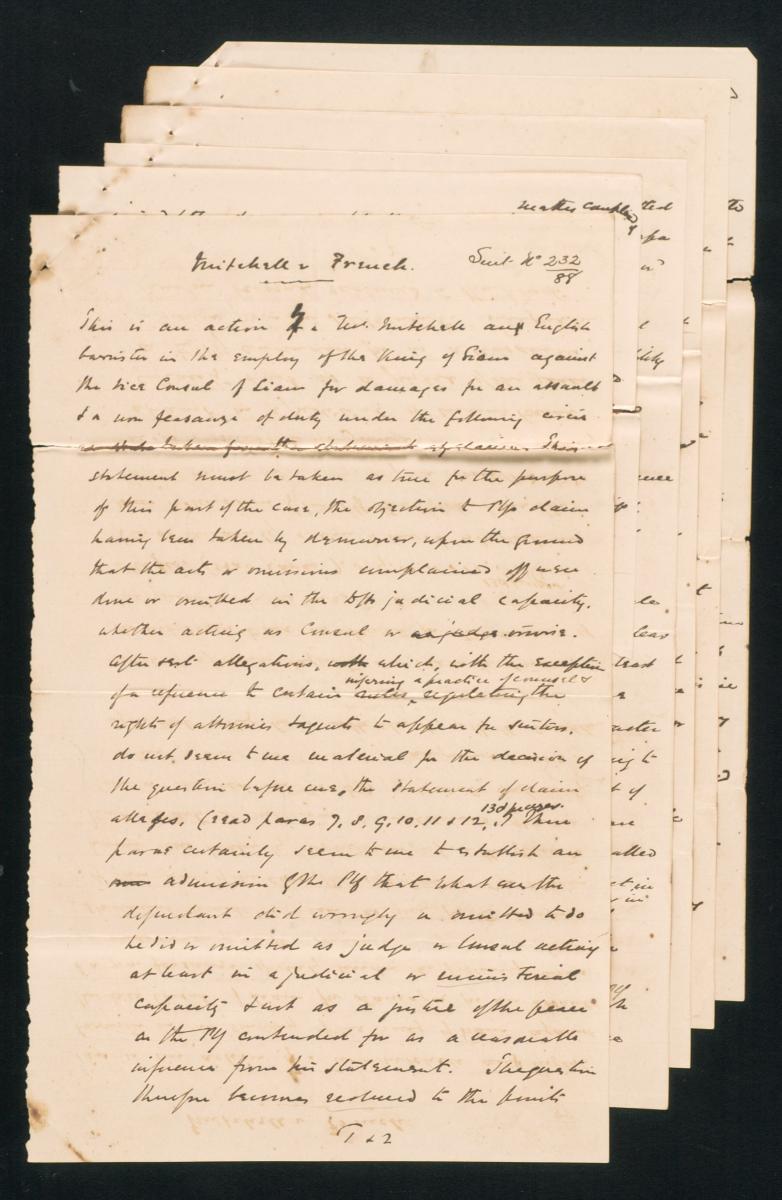 Mitchell v French.
Suit No 232/88
This is an action by a Mr. Mitchell an English
barrister in the employ of the King of Siam against
the Vice Consul of Siam for damages for an assault
& a non feasance of duty under the following circs
as taken from the statement of claim. This
statement must be taken as true for the purpose
of this part of the case, the objection to Plfs claim
having been taken by demurrer, upon the ground
that the acts or omissions complained of were
done or omitted in the Dfts judicial capacity,
whether acting as Consul or as judge
After allegations, with which, with the exception
inferring a practice of counsel &
of a reference to certain rules, regulating the
rights of attornies & agents to appear for suitors,
do not seem to me material for the decision of
the question before me, the statement of claim
13
alleges. (read paras 7, 8, 9, 10, 11 & 12,) These
paras certainly seem to me to establish an
admission by the Plf that whatever the
defendant did wrongly or omitted to do
he did or omitted as judge or Consul acting
at least in a judicial or ministerial
capacity & not as a justice of the peace
as the Plf contended for as a reasonable
inference from his statement. The question
therefore becomes reduced to the points
1 & 2